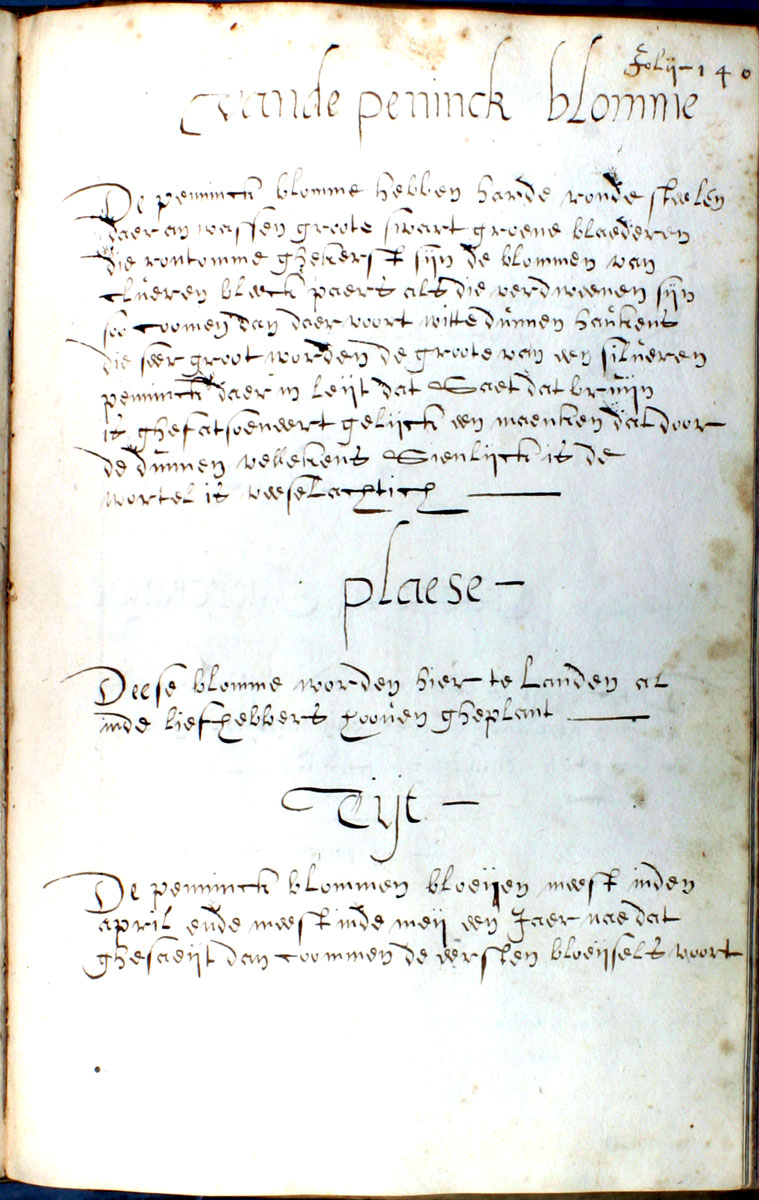 Folij - 140
Vande peninck blomme
De pennincK blomme hebben harde ronde steelen
daer an wassen groote swart groene blaederen
die rontomme ghekerft sijn de blommen van
clueren bleeck paers als die verdweenen sijn
soo coomen dan daer voort witte dunnen haukens
die seer groot worden de groote van een silueren
penninck daer in leijt dat Saet dat bruijn
is ghefatsoeneert gelijck een maenken dat door
de dunnen vellekens Sienlijck is de
wortel is veeselachtich
plaese -
Deese blomme worden hier te Landen al
inde liefhebbers hoouen gheplant
Tijt -
De penninck blommen bloeijen meest inden
april ende meest inde meij een Jaer nae dat
ghesaeijt dan coommen de eersten bloeijsels voort